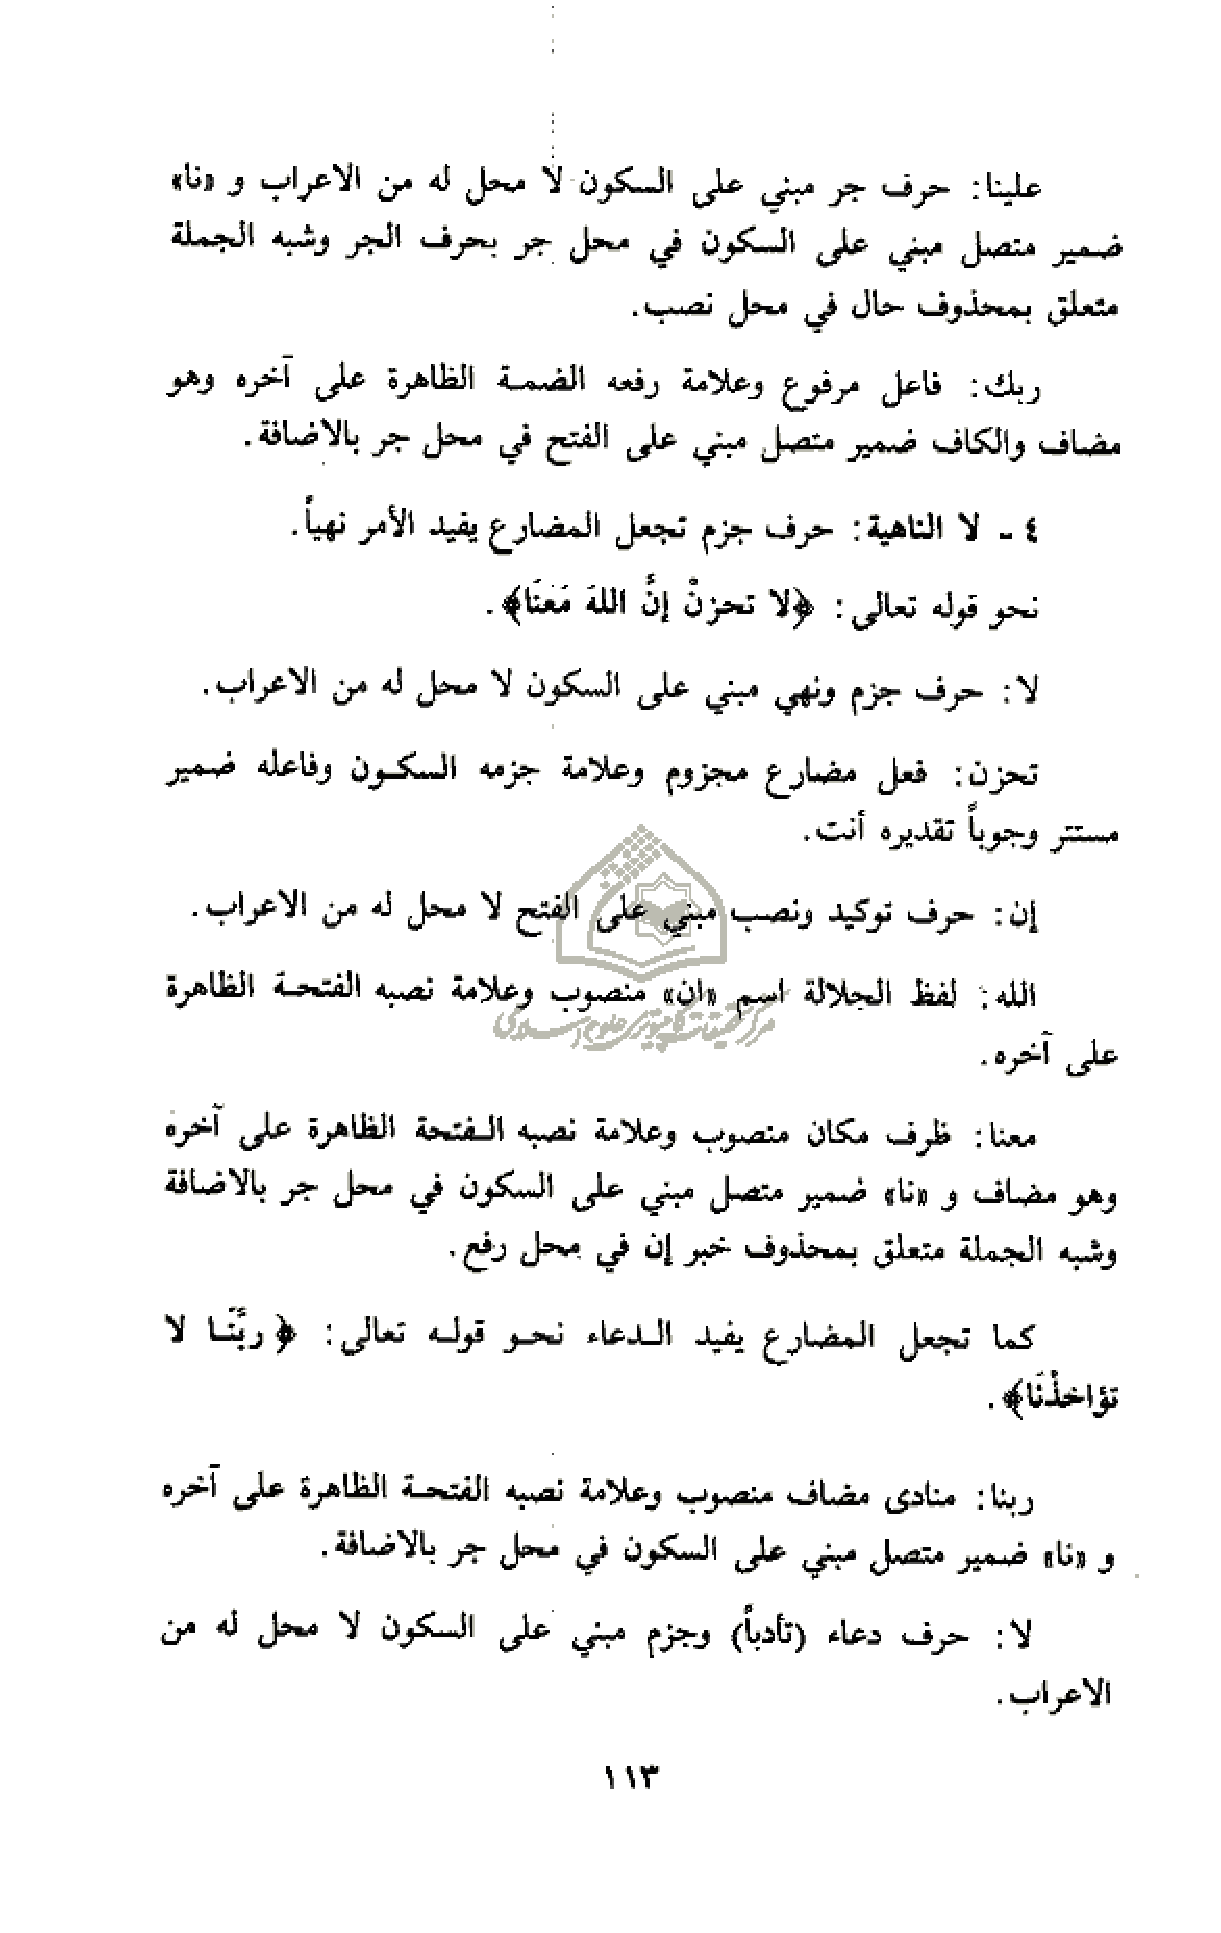 علينا: حرف جر مبني على السكون لا محل له من الاعراب و «نا»
ضمير متصل مبني على السكون في محل جر بحرف الجر وشبه الجملة
متعلق بمحذوف حال في محل نصب.
ربك: فاعل مرفوع وعلامة رفعه الضمة الظاهرة على آخره وهو
مضاف والكاف ضمير متصل مبني على الفتح في محل جر بالاضافة.
٤ - لا الناهية: حرف جزم تجعل المضارع يفيد الأمر نهياً.
نحو قوله تعالى: ﴿لا تحزنْ إنَّ اللهَ مَعنَا﴾.
لا: حرف جزم ونهي مبني على السكون لا محل له من الاعراب.
تحزن: فعل مضارع مجزوم وعلامة جزمه السكون وفاعله ضمير
مستتر وجوباً تقديره أنت.
إن: حرف توكيد ونصب مبني على الفتح لا محل له من الاعراب.
الله: لفظ الجلالة اسم «ان» منصوب وعلامة نصبه الفتحة الظاهرة
على آخره.
مركز تحقيقات كامپيوتری علوم اسلامی
معنا: ظرف مكان منصوب وعلامة نصبه الفتحة الظاهرة على آخره
وهو مضاف و «نا» ضمير متصل مبني على السكون في محل جر بالاضافة
وشبه الجملة متعلق بمحذوف خبر إن في محل رفع.
كما تجعل المضارع يفيد الدعاء نحو قوله تعالى: ﴿ربَّنَا لا
تؤاخذْنَا﴾.
ربنا: منادى مضاف منصوب وعلامة نصبه الفتحة الظاهرة على آخره
و «نا» ضمير متصل مبني على السكون في محل جر بالاضافة.
لا: حرف دعاء (تأدباً) وجزم مبني على السكون لا محل له من
الاعراب.
١١٣